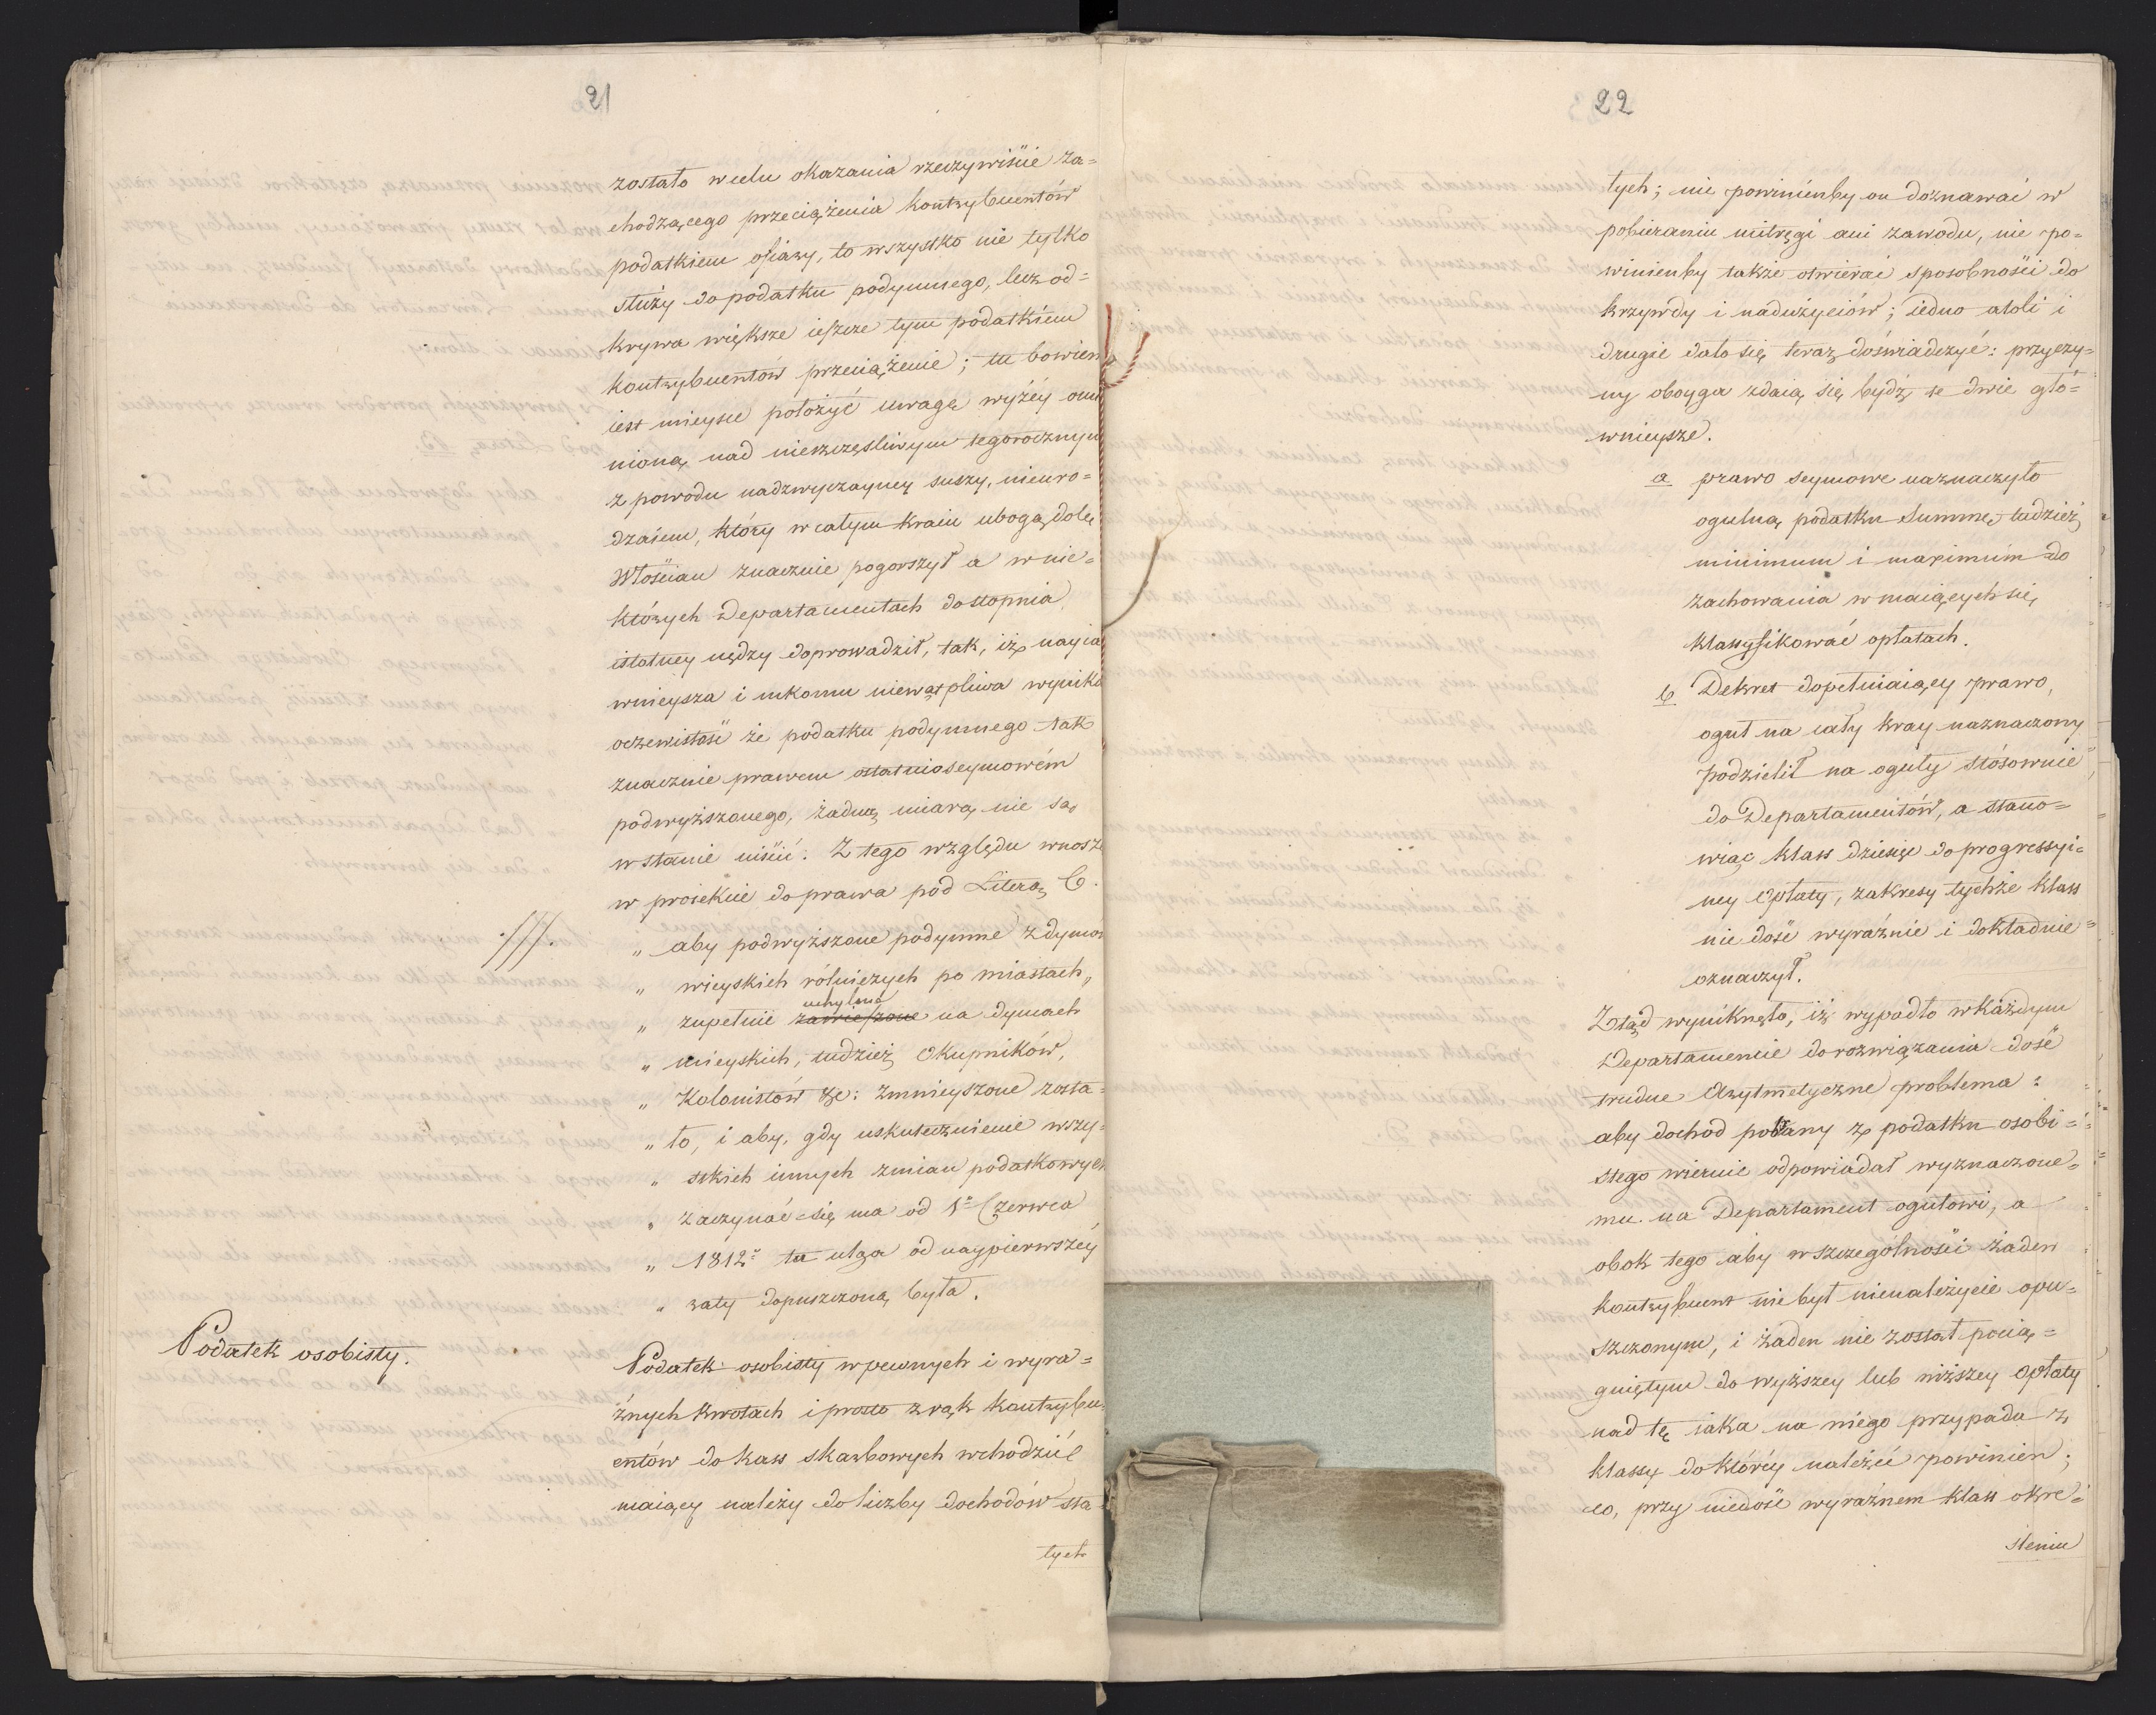 21
zostało w celu okazania rzeczywiście za=
chodzącego przeciążenia kontrybuentów
podatkiem ofiary, to wszystko nie tylko
służy do podatku podymnego, lecz od=
krywa większe ieszcze tym podatkiem
kontrybuentów przeciążenie; tu bowiem
iest mieysce położyć uwagę wyżéy
nioną nad nieszczęśliwym tegorocznym
z powodu nadzwyczayney suszy, nieuro=
dzaiem, który w całym kraiu ubogą dolę
Włościan znacznie pogorszył a w nie=
których Departamentach do stopnia
istotney nędzy doprowadził, tak, iż nayia
wnieysza i nikomu niewątpliwa wynika
oczewistość że podatku podymnego tak
znacznie prawem ostatnio seymowém
podwyższonego, żadną miarą nie są
w stanie uiścić. Z tego względu wnoszę
w proiekcie do prawa pod Literą C.
.///.
„ aby podwyższone podymne z dymów
„ wieyskich rólniczych po miastach,
uchylone
„ zupełnie zawieszone na dymach
„ mieyskich, tudzież Okupników,
„ Kolonistów &c: zmnieyszone zosta=
„ ło, i aby, gdy uskutecznienie wszy=
„ stkich innych zmian podatkowych
„ zaczynać się ma od 1º Czerwca
„ 1812º ta ulga od naypierwszéy
„ raty dopuszczoną była.
Podatek osobisty.
Podatek osobisty w pewnych i wyra=
źnych kwotach i prosto z rąk kontrybu=
entów do kass skarbowych wchodzić
maiący należy do liczby dochodów sta=
tych
22
tych; nie powinienby on doznawać w
pobieraniu mitręgi ani zawodu, nie po=
winienby także otwierać sposobności do
krzywdy i nadużyciów; iedno atoli i
drugie dało się teraz doświadczyć: przyczy=
ny oboyga zdaią się bydź te dwie głó=
wnieysze.
a prawo seymowe naznaczyło
ogulną podatku Summę, tudzież
minimum i maximum do
zachowania w maiących się
klassyfikować opłatach.
b Dekret dopełniaiący prawo,
oguł na cały kray naznaczony
podzielił na oguły stósownie
do Departamentów, a stano=
wiąc klass dziesięć do progressyi=
ney Opłaty, zakresy tychże klass
nie dość wyraźnie i dokładnie
oznaczył.
Ztąd wyniknęło, iż wypadło w każdym
Departamencie do rozwiązania dość
trudne Arytmetyczne problema:
aby dochod pobrany z podatku osobi=
stego wiernie odpowiadał wyznaczone=
mu na Departament ogułowi, a
obok tego aby w szczególności żaden
kontrybuent nie był nienależycie opu=
szczonym, i żaden nie został pocią=
gniętym do wyższey lub niższey Opłaty
nad tę iaka na niego przypada z
klassy do któréy należeć powinien;
co, przy niedość wyraźnem klass okre=
śleniu